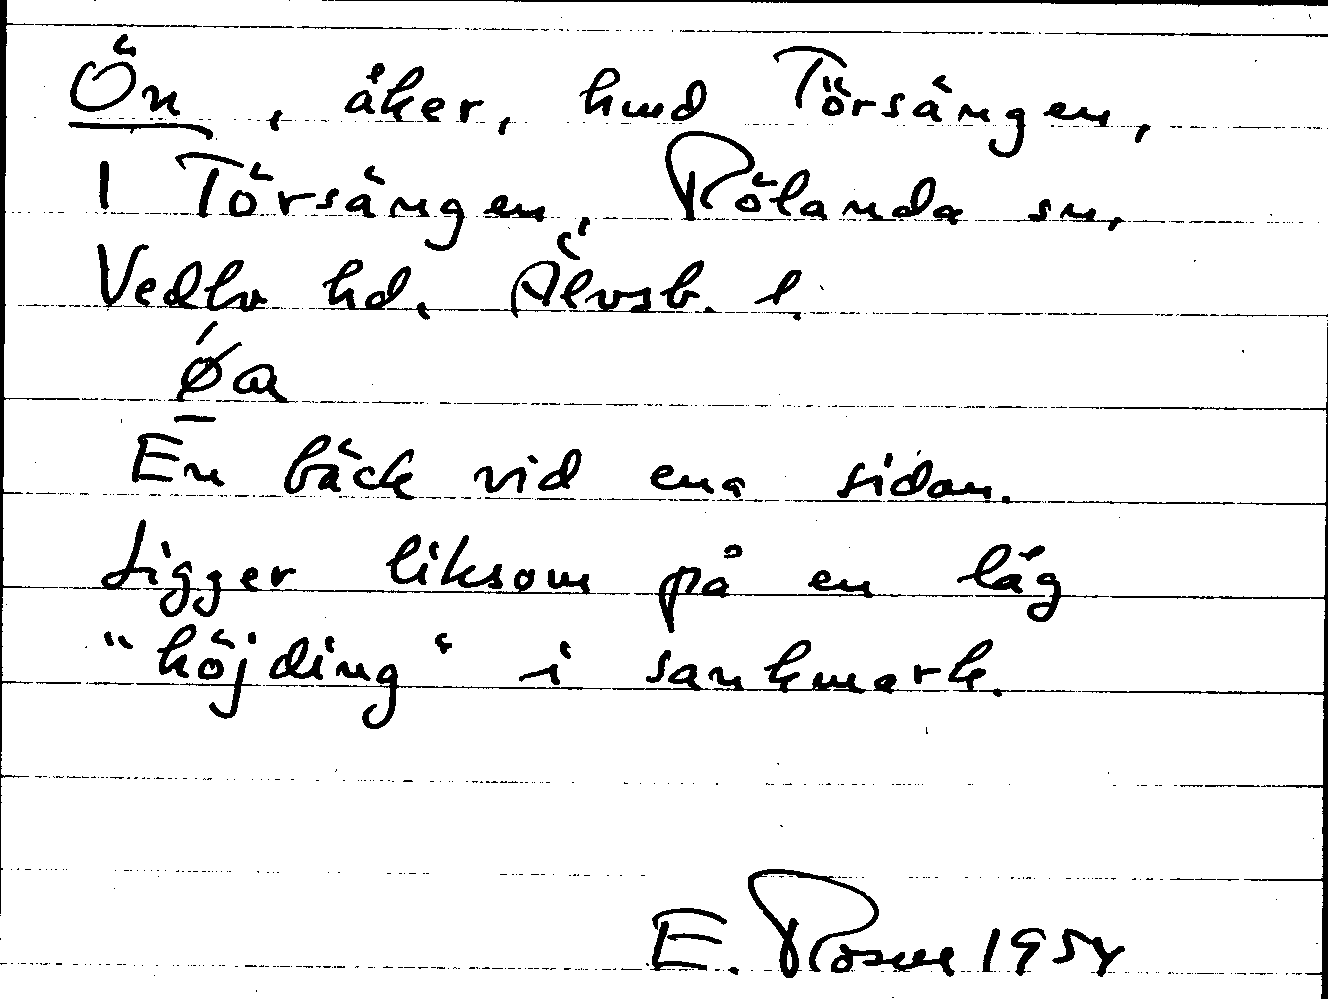 Ön, åker, hmd Törsängen,
1 Törsängen, Rölanda sn,
Vedbo hd, Älvsb. l.
ǿa
En bäck vid ena sidan.
Ligger liksom på en låg
"höjding" i sankmark.
E. Rosell 1954